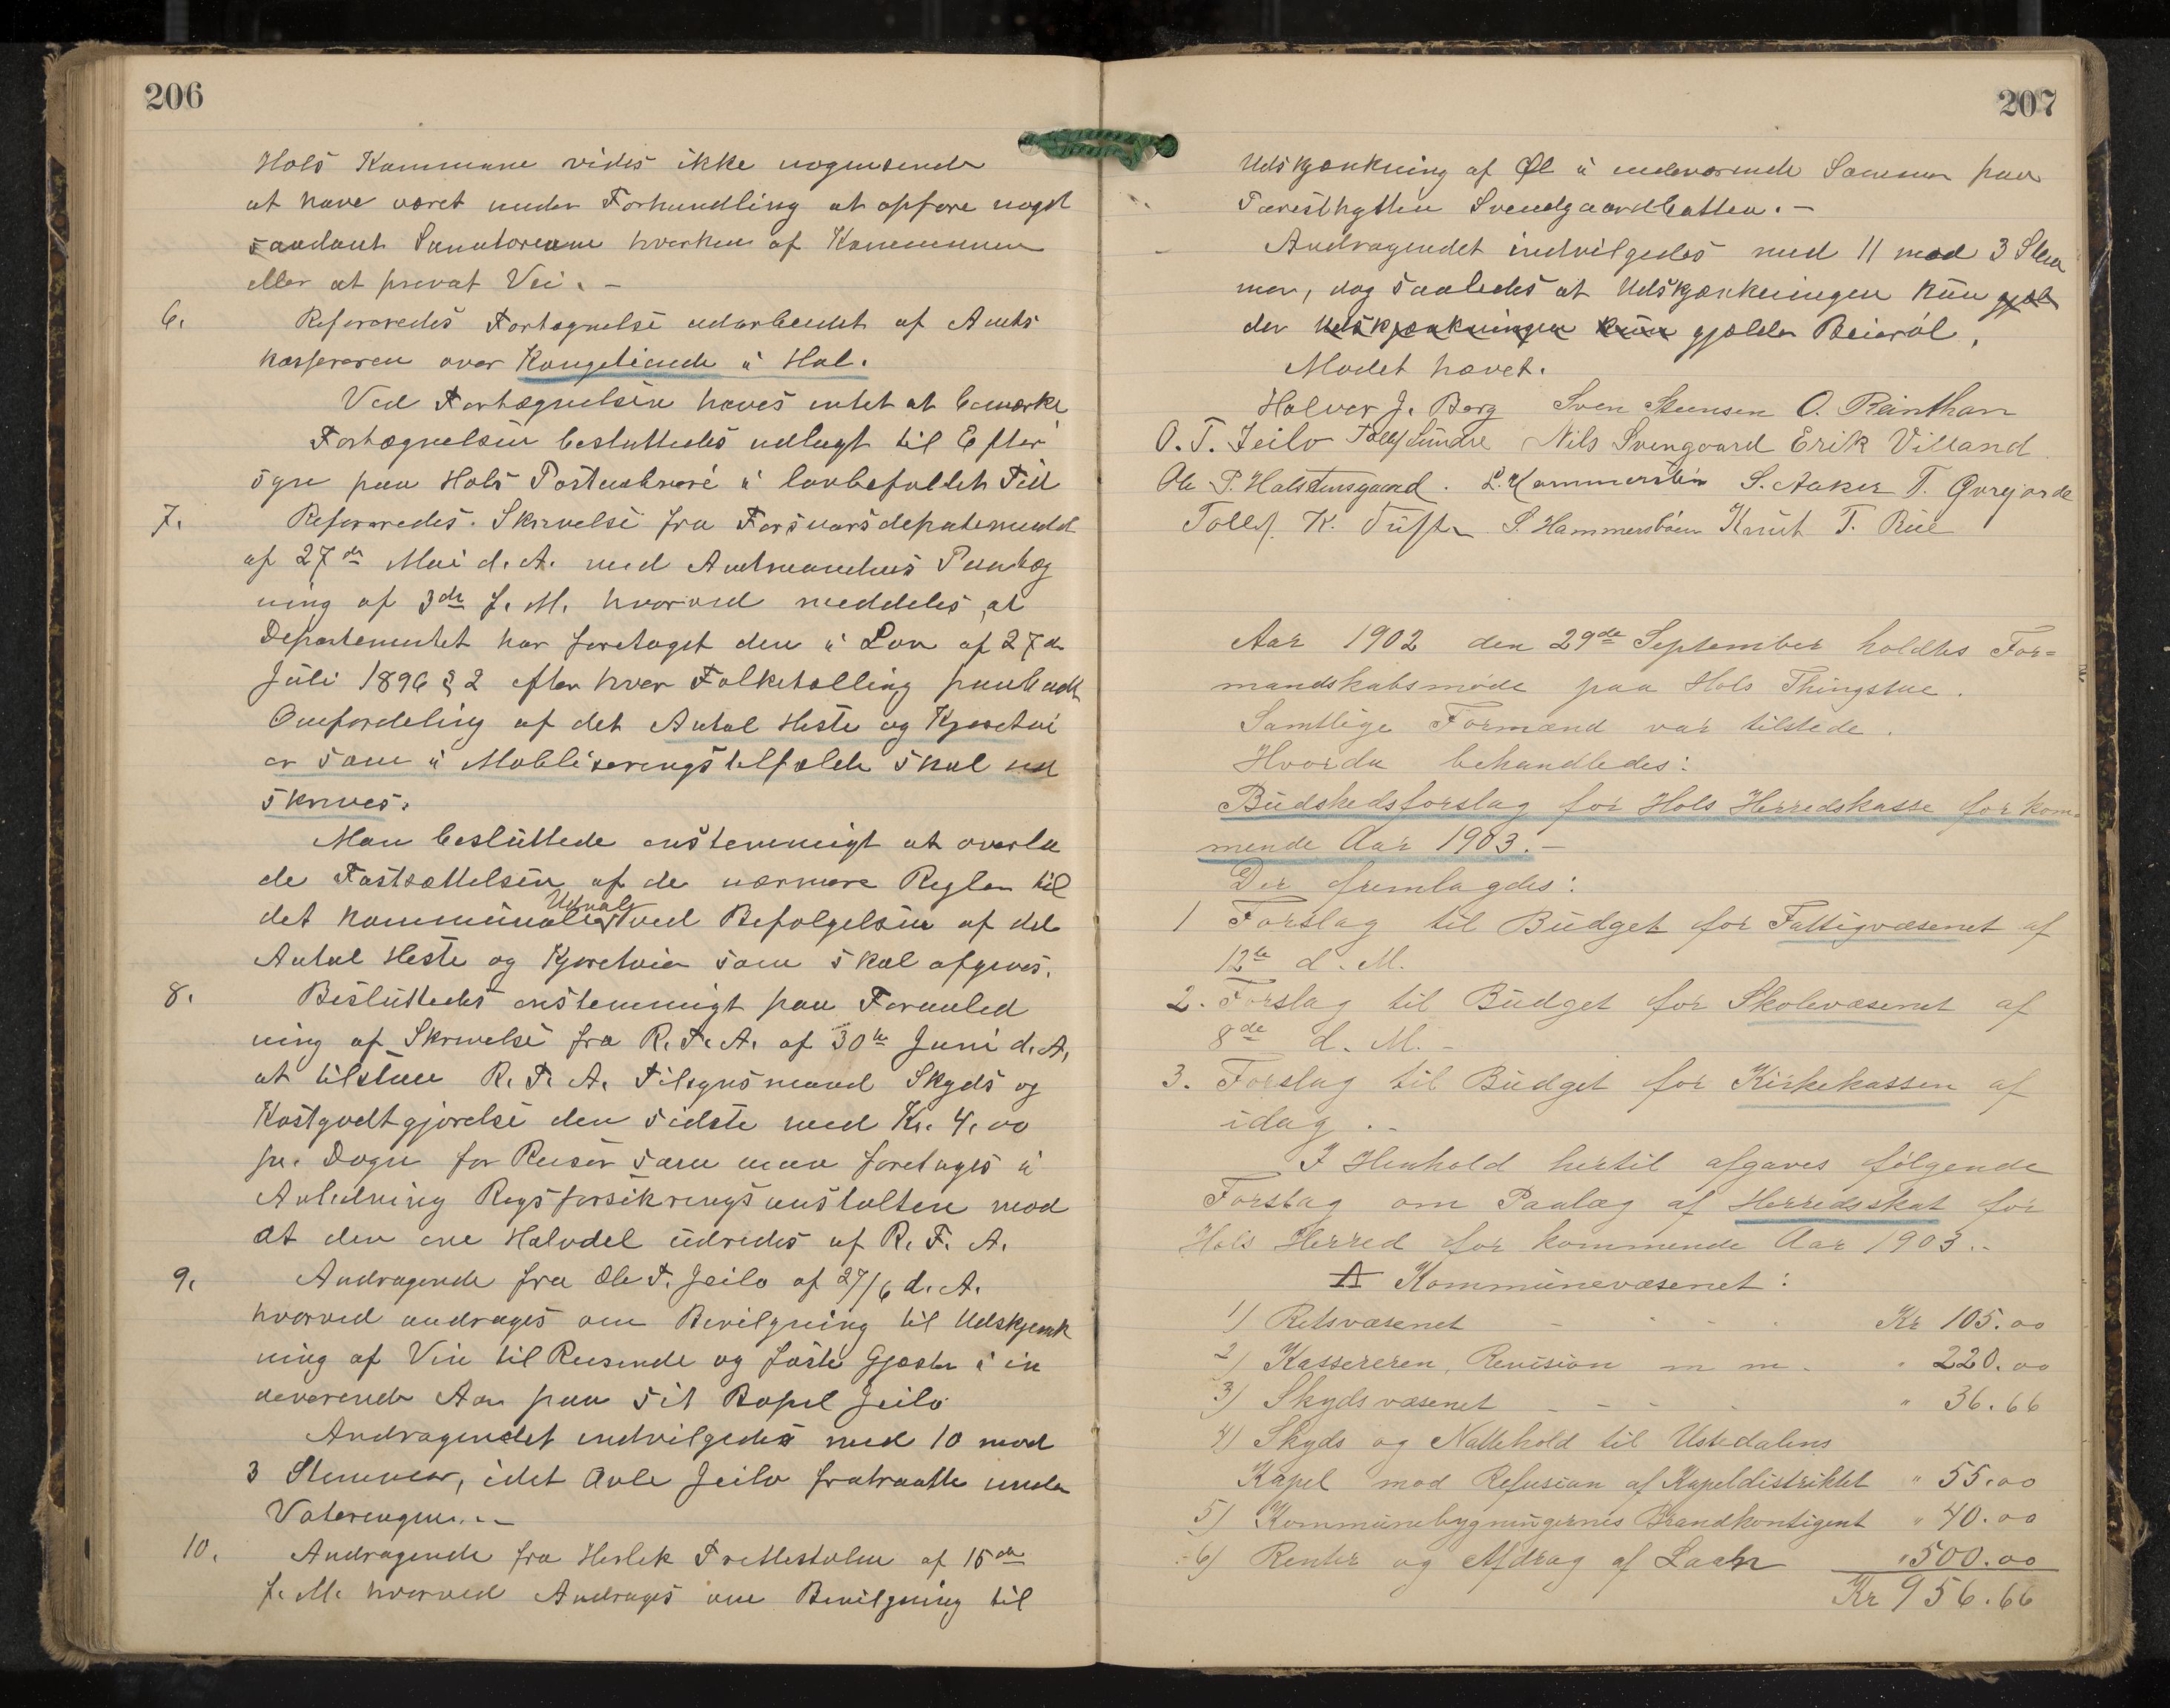 206
Hols Kommune vides ikke nogensende
at have været under Forhandling at opføre noget
saadant Sanatorium hverken af Kommunen
eller at privat Vei. –
6. Refereredes Fortegnelse udarbeidet af Amts
kassereren over Kongetiende i Hol.
Ved Fortægnelsen haves intet at bemærke
Fortægnelsen besluttedes udlagt til Efter
syn paa Hols Postaabneri i lovbefallet Tid
7. Refereredes Skrivelse fra Forsvarsdepatementet
af 27de Mai d. A. med Amtmandens Paateg
ning af 3de f. M. hvorved meddeles, at
Departementet har foretaget den i Lov af 27de
Juli 1896 § 2 efter hver Folketælling paabudte
Omfordeling af det Antal Heste og Kjøretøi
er som i Mobliseringstilfælde skal ud
skrives.
Man besluttede enstemmigt at overla
de Fastsættelsen af de nærmere Regler til
det kommunale Udvalg ved Befølgelsen af det
Antal Heste og Kjøretøier som skal afgives.
8. Besluttedes enstemmigt paa Foranled
ning af Skrivelse fra R. F. A. af 30te Juni d. A.
at tilstaa R. F. A. Tilsynsmand Skyds og
Kostgodtgjørelse den sidste med Kr. 4,00
pr. Døgn for Reiser som maa foretages i
Anledning Rigsforsikringsanstalten mod
at den ene Halvdel udredes af R. F. A.
9. Andragende fra Ole T. Jeilo af 27/6 d. A.
hvorved andrages om Bevilgning til Udskjænk
ning af Vin til Reisende og faste Gjæster i in
deværende Aar paa sit Bopel Jeilo
Andragendet indvilgedes med 10 mod
3 Stemmer, idet Avle Jeilo fratraadte under
Voteringen. –
10. Andragende fra Herlek Trettestølen af 15de
f. M. hvorved Andrages om Bevilgning til
207
Udskjænkning af Øl i indeværende Sommer paa
Turisthytten Svendgaardbatten. –
Andragendet indvilgedes med 11 mod 3 Stem
mer, dog saaledes at Udskjænkningen kun gjæl
der Udskjænkningen kun gjælder Beierøl.
Mødet hævet.
Halvor J. Berg Sven Steinsen O. Reinthon
O. T. Jeilo Tollef Sundre Nils Svengaard Erik Villand
Ole P. Halstensgaard. L. Kammerstin S. Aaker T. Qvejorde
Tollef K. Tufte S. Hammersbøen Knut T. Rue
Aar 1902 den 29de September holdtes For=
mandskabsmøde paa Hols Thingstue.
Samtlige Formænd var tilstede.
Hvorda behandledes:
Budskedsforslag for Hols Herredskasse for kom-
mende Aar 1903. –
Der fremlagdes:
1 Forslag til Budget for Fattigvæsenet af
12te d. M.
2. Forslag til Budget for Skolevæsenet af
8de d. M. –
3. Forslag til Budget for Kirkekassen af
idag. –
I Henhold hertil afgaves følgende
Forslag om Paalæg af Herredsskat for
Hols Herred for kommende Aar 1903. –
A Kommunevæsenet:
1) Retsvæsenet – Kr 105.00
2) Kassereren, Revision m m. " 220.00
3) Skydsvæsenet – – – " 36.66
4) Skyds og Nattehold til Ustedalens
Kapel mod Refusion af Kapeldistriktet " 55.00
5) Kommunebygningernes Brandkontigent " 40.00
6) Renter og Afdrag af Laan " 500.00
Kr 956.66